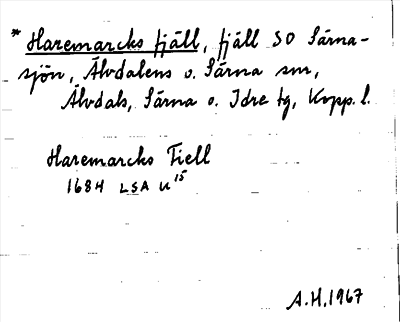 * Haremarcks fjäll, fjäll SO Särna-
sjön, Älvdalens o. Särna snr,
Älvdals, Särna o. Idre tg, Kopp. l.
Haremarcks Fiell
1684 LSA U15
A.H. 1967